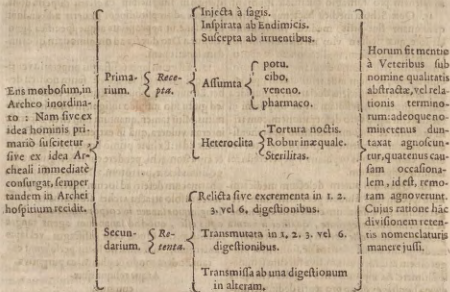 Ens morbosum, in
Archeo inordina-
to : Nam sive ex
idea hominis pri-
mario suscitetur,
sive ex idea Ar-
cheali immediatè
consurgat, semper
tandem in Archei
hospitium recidit.
Prima-
rium.
Rece-
ptæ.
Injecta à sagis.
Inspirata ab Endimicis.
Suscepta ab irruentibus.
Assumta
potu.
cibo,
veneno.
pharmaco.
Heteroclita
Tortura noctis.
Robur inæquale.
Sterilitas.
Secun-
darium.
Re-
tenta.
Relicta sive excrementa in 1. 2.
3, vel 6, digestionibus.
Transmutata in 1. 2. 3. vel 6.
digestionibus.
Transmissa ab una digestionum
in alteram.
Horum fit mentio
à Veteribus sub
nomine qualitatis
abstractæ, vel rela-
tionis termino-
rum: adeoque no-
minetenus dun-
taxat agnoscun-
tur, quatenus cau-
sam occasiona-
lem, id est, remo-
tam agnoverunt.
Cujus ratione hâc
divisionem reten-
tis nomenclaturis
manere jussi.